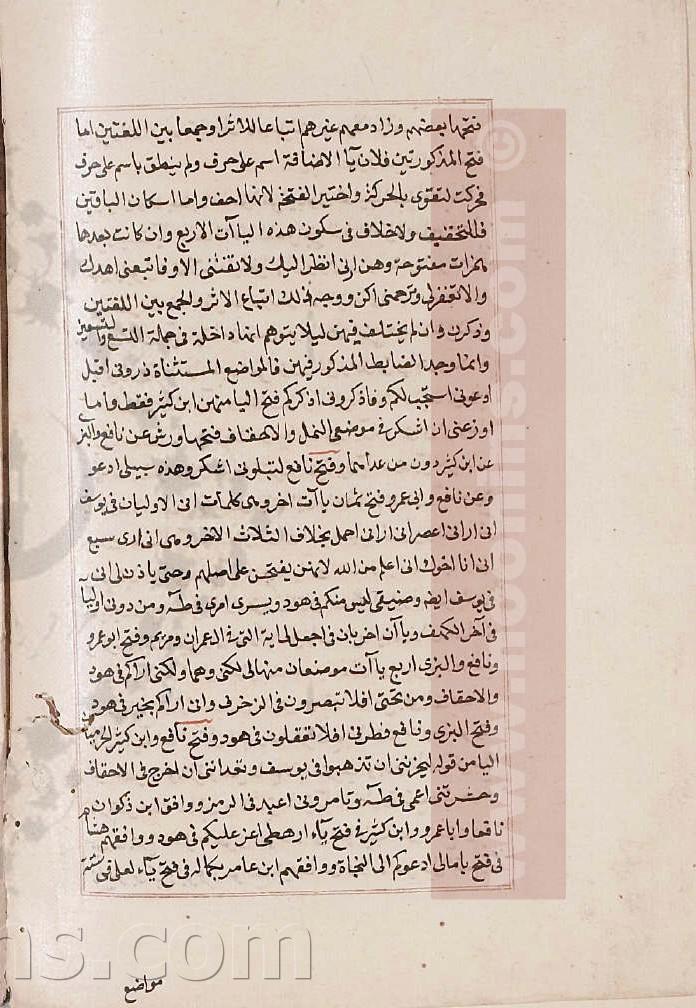 فتحها بعضهم وزاد معهم غيرهم اتباعا للاثر او جمعا بين اللغتين اما
فتح المذكورتين فلان يآ الاضافة اسم على حرف ولم ينطق باسم على حرف
فحركت لتقوى بالحركة واختير الفتحة لانها اخف واما اسكان الباقين
فللتخفيف ولا خلاف فى سكون هذه الياآت الاربع وان كانت بعدها
همزات مفتوحة وهن ارنى انظر اليك ولا تفتنى الا وفاتبعنى اهدك
والا تغفر لى وترحمنى اكن ووجه ذلك اتباع الاثر والجمع بين اللغتين
وذكرن وان لم يختلف فيهن ليلا يتوهم انها داخلة فى جملة التسع والتسعين
وانما وجد الضابط المذكور فيهن فالمواضع المستثناة ذرونى اقتل
ادعونى استجب لكم وفاذكرونى اذكركم فتح اليا منهن ابن كثير فقط واما
اوزعنى ان اشكر فى موضعى النمل والاحقاف فتحها ورش عن نافع والبزى
عن ابن كثير دون من عداهما وفتح نافع لتبلونى اشكر وهذه سبيلى ادعو
وعن نافع وابى عمرو فتح ثمان ياآت اخر وهى كلمات انى الاوليان فى يوسف
انى ارانى اعصر انى ارانى احمل بخلاف الثلاث الاخر وهى انى ارى سبع
انى انا اخوك انى اعلم من الله لانهن يفتحن على اصلهم وحتى ياذن لى ابى
فى يوسف ايضا وضيفى اليس منكم فى هود ويسرى امرى فى طه ومن دونى اوليآ
فى آخر الكهف وياآن اخريان فى اجعل لى اية التى فى ال عمران ومريم وفتح ابو عمرو
ونافع والبزى اربع ياآت موضعان منها لى لكنى وهما ولكنى اراكم فى هود
والاحقاف ومن تحتى افلا تبصرون فى الزخرف وانى اراكم بخير فى هود
وفتح البزى ونافع فطرنى افلا تعقلون فى هود وفتح نافع وابن كثير الحرميان
اليا من قوله ليحزننى ان تذهبوا فى يوسف وتعداننى ان اخرج فى الاحقاف
وحشرتنى اعمى فى طه وتامرونى اعبد فى الزمر ووافق ابن ذكوان
نافعا وابا عمرو وابن كثير فى فتح يآء ارهطى اعز عليكم فى هود ووافقهم هشام
فى فتح يا مالى ادعوكم الى النجاة ووافقهم ابن عامر بكماله فى فتح يآء لعلى فى ستة
مواضع